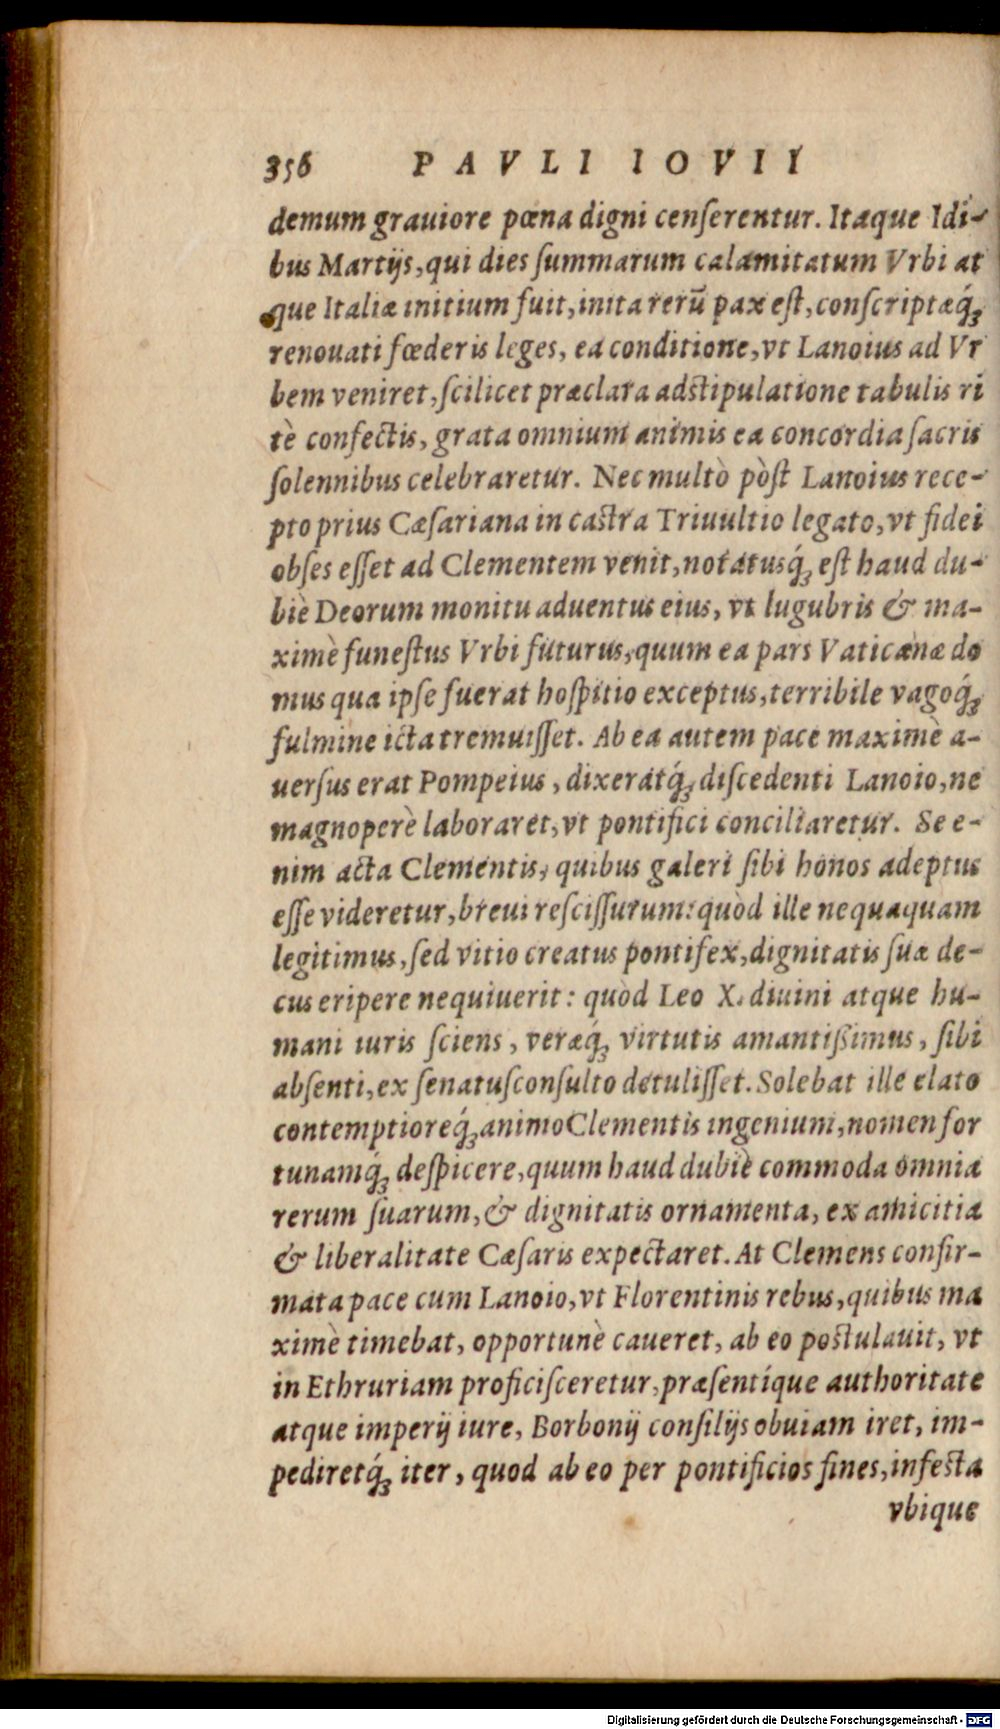 356 PAVLI IOVII
demum grauiore pœna digni censerentur. Itaque Idi-
bus Martijs, qui dies summarum calamitatum Vrbi at
que Italiæ initium fuit, inita rerū pax est, conscriptæq́;
renouati fœderis leges, ea conditione, vt Lanoius ad Vr
bem veniret, scilicet præclara adstipulatione tabulis ri
tè confectis, grata omnium animis ea concordia sacris
solennibus celebraretur. Nec multò pòst Lanoius rece-
pto prius Cæsariana in castra Triuultio legato, vt fidei
obses esset ad Clementem venit, notatusq́; est haud du-
biè Deorum monitu aduentus eius, vt lugubris & ma-
ximè funestus Vrbi futurus, quum ea pars Vaticanæ do
mus qua ipse fuerat hospitio exceptus, terribile vagoq́;
fulmine icta tremuisset. Ab ea autem pace maximè a-
uersus erat Pompeius, dixeratq́; discedenti Lanoio, ne
magnoperè laboraret, vt pontifici conciliaretur. Se e-
nim acta Clementis, quibus galeri sibi honos adeptus
esse videretur, breui rescissurum: quòd ille nequaquam
legitimus, sed vitio creatus pontifex, dignitatis suæ de-
cus eripere nequiuerit: quòd Leo X. diuini atque hu-
mani iuris sciens, veræq́; virtutis amantißimus, sibi
absenti, ex senatusconsulto detulisset. Solebat ille elato
contemptioreq́; animo Clementis ingenium, nomen for
tunamq́; despicere, quum haud dubiè commoda omnia
rerum suarum, & dignitatis ornamenta, ex amicitia
& liberalitate Cæsaris expectaret. At Clemens confir-
mata pace cum Lanoio, vt Florentinis rebus, quibus ma
ximè timebat, opportunè caueret, ab eo postulauit, vt
in Ethruriam proficisceretur, præsentíque authoritate
atque imperij iure, Borbonij consilijs obuiam iret, im-
pediretq́; iter, quod ab eo per pontificios fines, infesta
vbique
Digitalisierung gefördert durch die Deutsche Forschungsgemeinschaft - DFG